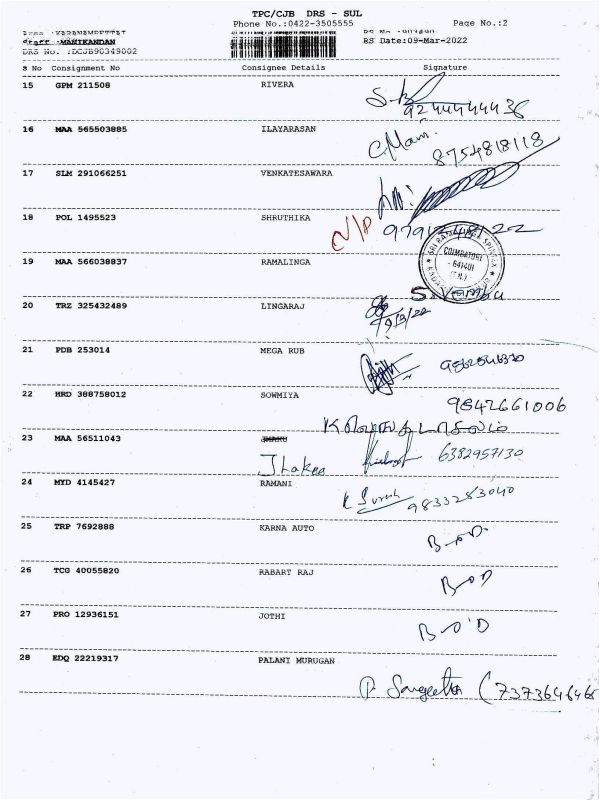 TPC/CJB DRS - SUL
Phone No.:0422-3505555 Page No.:2
Staff :MANIKANDAN RS Date:09-Mar-2022
DRS No. :DCJB90349002
S No Consignment No Consignee Details Signature
15 GPM 211508 RIVERA
9244444436
16 MAA 565503885 ILAYARASAN
8754818118
17 SLM 291066251 VENKATESAWARA
18 POL 1495523 SHRUTHIKA
N/P
COIMBATORE
- 641401
(T.N.)
19 MAA 566038837 RAMALINGA
20 TRZ 325432489 LINGARAJ
21 PDB 253014 MEGA RUB
22 HRD 388758012 SOWMIYA
9842661006
23 MAA 56511043
Jhakaa 6382957130
24 MYD 4145427 RAMANI
K Suresh 9833283040
25 TRP 7692888 KARNA AUTO
B-O-D
26 TCG 40055820 RABART RAJ
B-O D
27 PRO 12936151 JOTHI
B-O'D
28 EDQ 22219317 PALANI MURUGAN
P. Sangeetha (7373646466